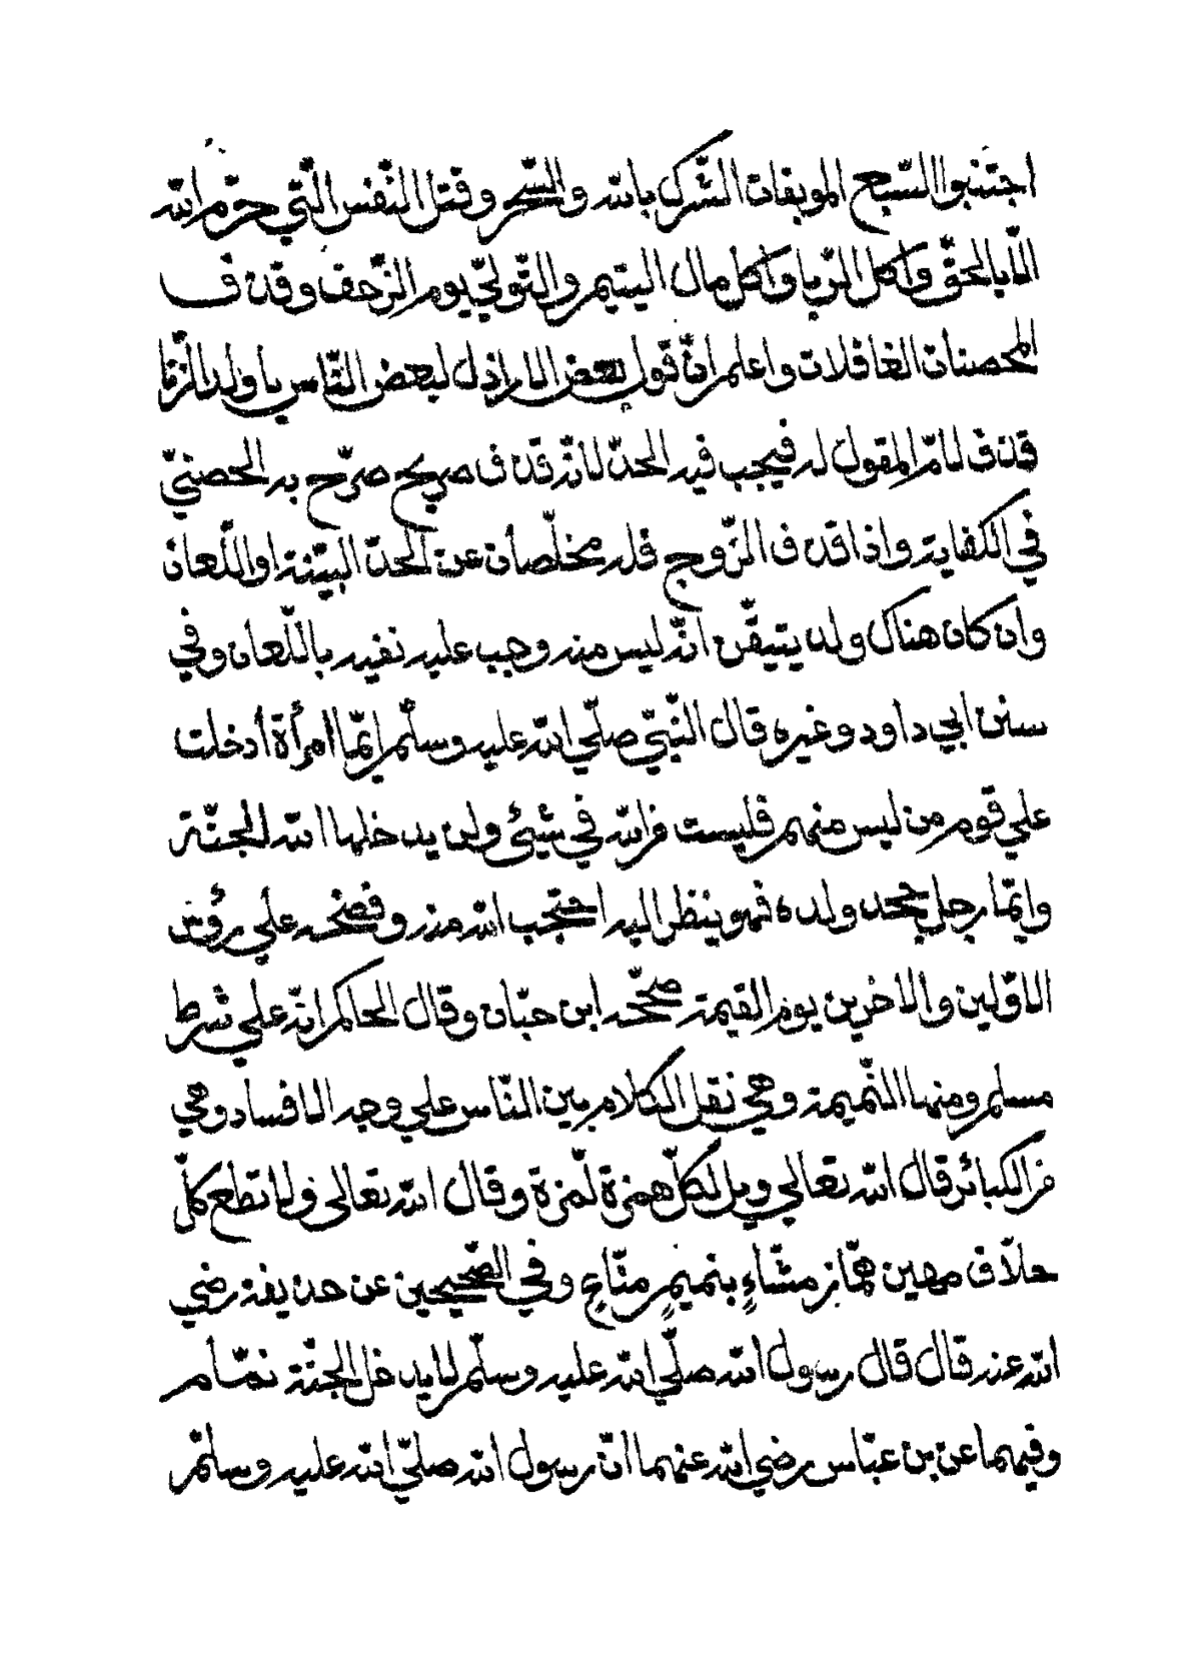 اجتنبوا السّبع الموبقات الشّرك بالله والسّحر وقتل النّفس الّتي حرّم الله
الّا بالحقّ واكل الرّبا واكل مال اليتيم والتّولّي يوم الزّحف وقذف
المحصنات الغافلات واعلم انّ قول بعض الاراذل لبعض النّاس يا ولد الزّنا
قذف لامّ المقول له فيجب فيه الحدّ لانّه قذف صريح صرّح به الحصنيّ
في الكفاية واذا قذف الزّوج فله مخلّصان عن الحدّ البيّنة او اللّعان
وان كان هناك ولد يتيقّن انّه ليس منه وجب عليه نفيه باللّعان وفي
سنن ابي داود وغيره قال النّبيّ صلّي الله عليه وسلّم ايّما امرأة أدخلت
علي قوم من ليس منهم فليست من الله في شيئ ولن يدخلها الله الجنّة
وايّما رجل جحد ولده فهو ينظر اليه احتجب الله منه وفضحه علي رؤس
الاوّلين والاخرين يوم القيمة صحّحه ابن حبّان وقال الحاكم انّه علي شرط
مسلم ومنها النّميمة وهي نقل الكلام بين النّاس علي وجه الافساد وهي
من الكبائر قال الله تعالي ويل لكلّ همزة لّمزة وقال الله تعالي ولا تطع كلّ
حلّاف مهين همّاز مشّاءٍ بنميمٍ منّاعٍ وفي الصّحيحين عن حذيفة رضي
الله عنه قال قال رسول الله صلّي الله عليه وسلّم لا يدخل الجنّة نمّام
وفيهما عن بن عبّاس رضي الله عنهما انّ رسول الله صلّي الله عليه وسلّم